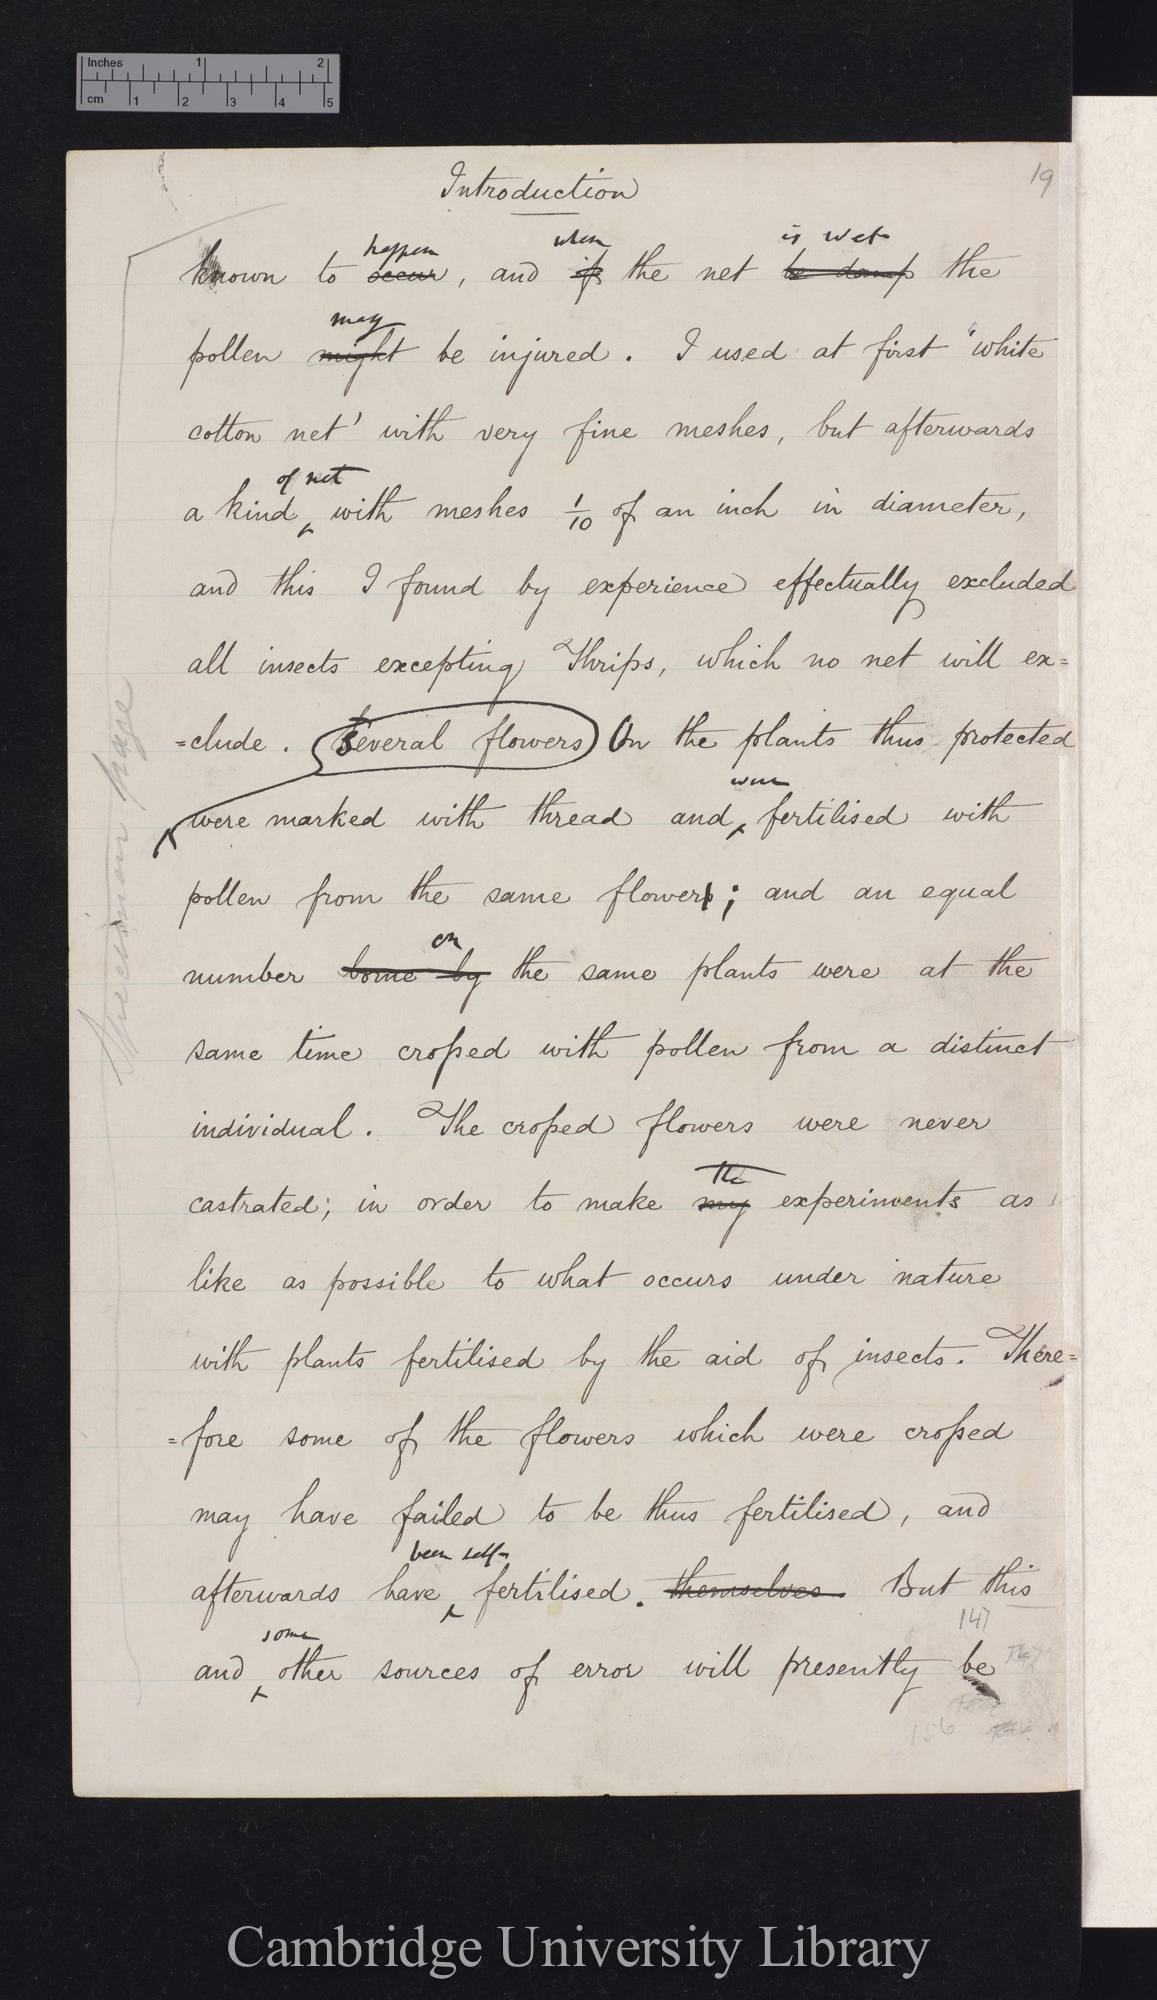 Inches 1 2
cm 1 2 3 4 5
Introduction
19
happen when is wet
known to occur, and if the net be damp the
may
pollen might be injured. I used at first 'white
cotton net' with very fine meshes, but afterwards
of net
a kind ‸ with meshes 1/10 of an inch in diameter,
and this I found by experience effectually excluded
all insects excepting Thrips, which no net will ex=
=clude. Several flowers On the plants thus protected
were
were marked with thread and ‸ fertilised with
pollen from the same flower; and an equal
on
number borne by the same plants were at the
same time crossed with pollen from a distinct
individual. The crossed flowers were never
the
castrated; in order to make my experiments as
like as possible to what occurs under nature
with plants fertilised by the aid of insects. There=
=fore some of the flowers which were crossed
may have failed to be thus fertilised, and
been self-
afterwards have ‸ fertilised. themselves. But this
147
some
and ‸ other sources of error will presently be
156
Specimen page
Cambridge University Library